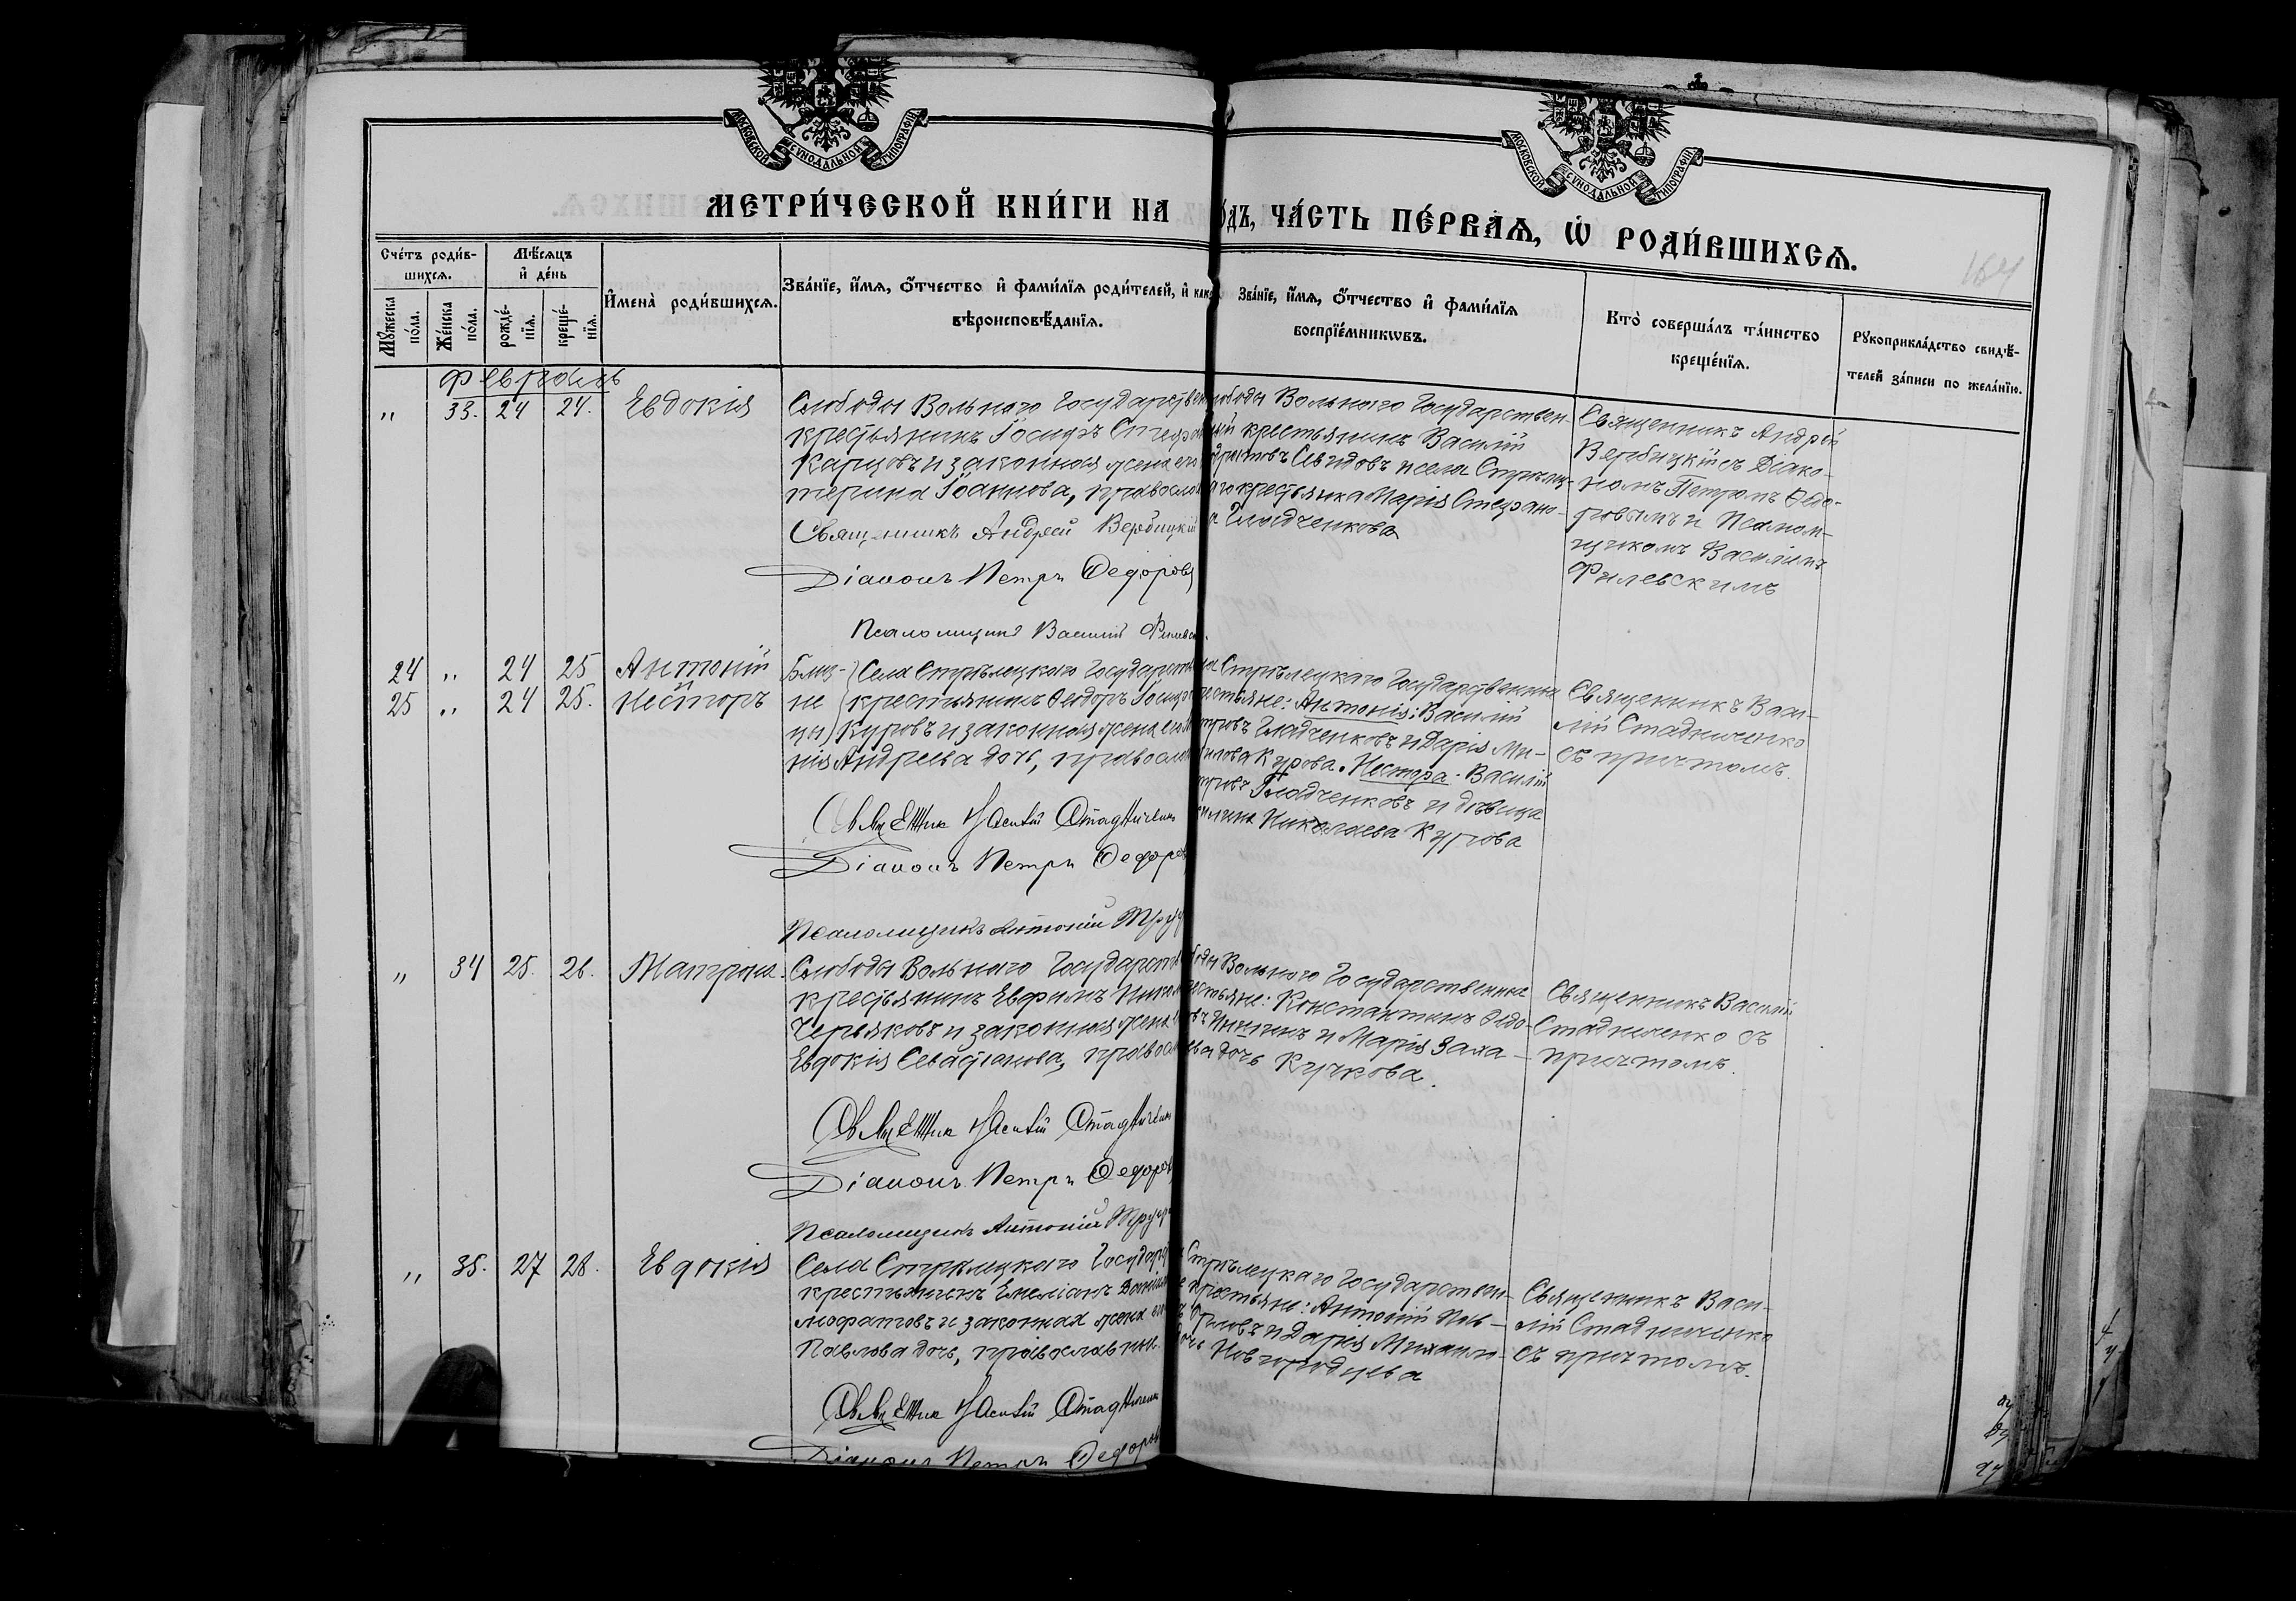 МОСКОВСКОЙ СѴНОДАЛЬНОЙ ТИПОГРАФІИ
МОСКОВСКОЙ СѴНОДАЛЬНОЙ ТИПОГРАФІИ
МЕТРИ́ЧЕСКОЙ КНИ́ГИ НА
ОДЪ, ЧА́СТЬ ПЕ́РВАЯ, Ѡ҆ РОДИ́ВШИХСЯ.
164
Сче́тъ роди́в-
шихся.
Мѣ́сяцъ
и҆ де́нь
Мꙋ́жеска
по́ла.
Же́нска
по́ла.
рожде́-
нїя.
креще́-
нїя.
И҆мена̀ роди́вшихся.
Зва́нїе, и҆́мя, ѻ҆́тчество и҆ фами́лїя роди́телей, и҆ как
вѣроисповѣ́данїя.
Зва́нїе, и҆́мя, ѻ҆́тчество и҆ фами́лїя
воспрїе́мникѡвъ.
Кто̀ соверша́лъ та́инство
креще́нїя.
Рꙋкоприкла́дство свидѣ́-
телей за́писи по жела́нїю.
Февраль
„ 33. 24 24. Евдокія
Слободы Вольнаго Государствен
крестьянинъ Іосифъ Стефан
Карцовъ и законная жена его
терина Іоаннова, правосла
Священникъ Андрей Вербицкій
Діаконъ Петръ Федоровъ
Псаломщикъ Василій Филевск
ободы Вольнаго Государствен-
ый крестьянинъ Василій
Севидовъ и села Стрѣлец-
аго крестьянка Марія Стефано-
а Гладченкова
Священникъ Андрей
Вербицкій съ Діако-
номъ Петромъ Ѳедо-
ровымъ и Псалом-
щикомъ Василіемъ
Филевскимъ
24 „ 24 25 Антоній
25 „ 24 25. Несторъ
Близ-
не
цы
Села Стрѣлецкаго Государств
крестьянинъ Ѳеодоръ Іосиф
Куровъ и законная жена его
нія Андреева дочь, правосла
Священникъ Василій Стадниченк
Діаконъ Петръ Федоров
Псаломщикъ Антоній Труф
ла Стрѣлецкаго Государственные
рестьяне: Антонія: Василій
тровъ Гладченковъ и Дарія Ми-
илова Курова. Нестора. Василій
тровъ Гладченковъ и дѣвица
Николаева Курова
Священникъ Васи-
лій Стадниченко
съ причтомъ.
„ 34 25. 26. Матрона
Слободы Вольнаго Государств
крестьянинъ Евфимъ Никол
Червяковъ и законная жена е
Евдокія Севастіанова, правосла
Священникъ Василій Стадниченк
Діаконъ Петръ Федоров
Псаломщикъ Антоній Труф
боды Вольнаго Государственные
рестьяне: Константинъ Ѳедо-
въ и Марія Заха-
ева дочь Кучкова.
Священникъ Василій
Стадниченко съ
причтомъ.
„ 35. 27 28. Евдокія
Села Стрѣлецкаго Государс
крестьянинъ Емеліанъ Даніил
и законная жена его
Павлова дочь, православн
Священникъ Василій Стадниченк
Діаконъ Петръ Федоров
Стрѣлецкаго Государствен-
е крестьяне: Антоній
Орловъ и Дарія Михаило-
дочь Новгородцева
Священникъ Васи-
лій Стадниченко
съ причтомъ.